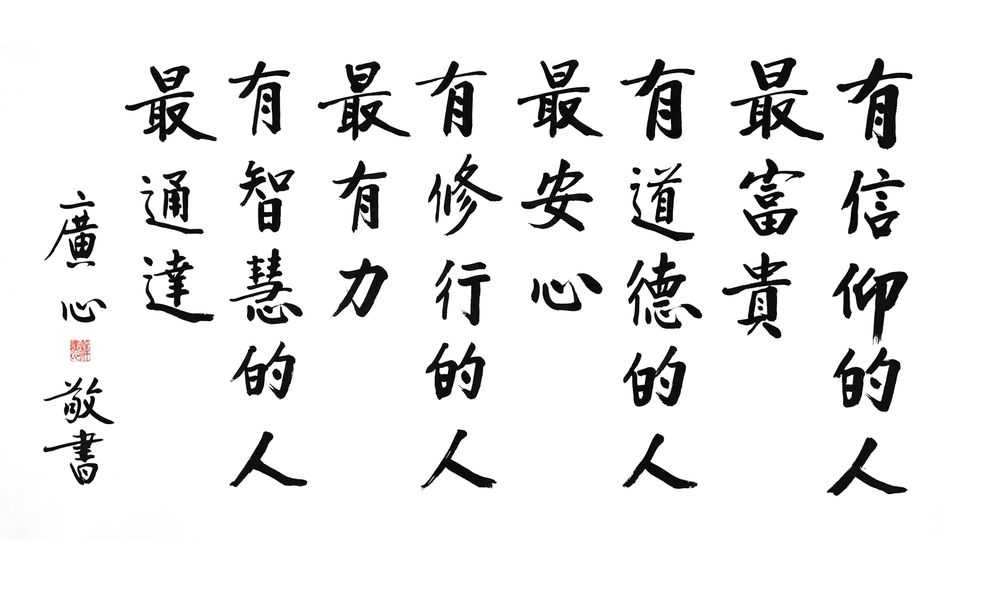 有信仰的人
最富貴
有道德的人
最安心
有修行的人
最有力
有智慧的人
最通達
廣心敬書